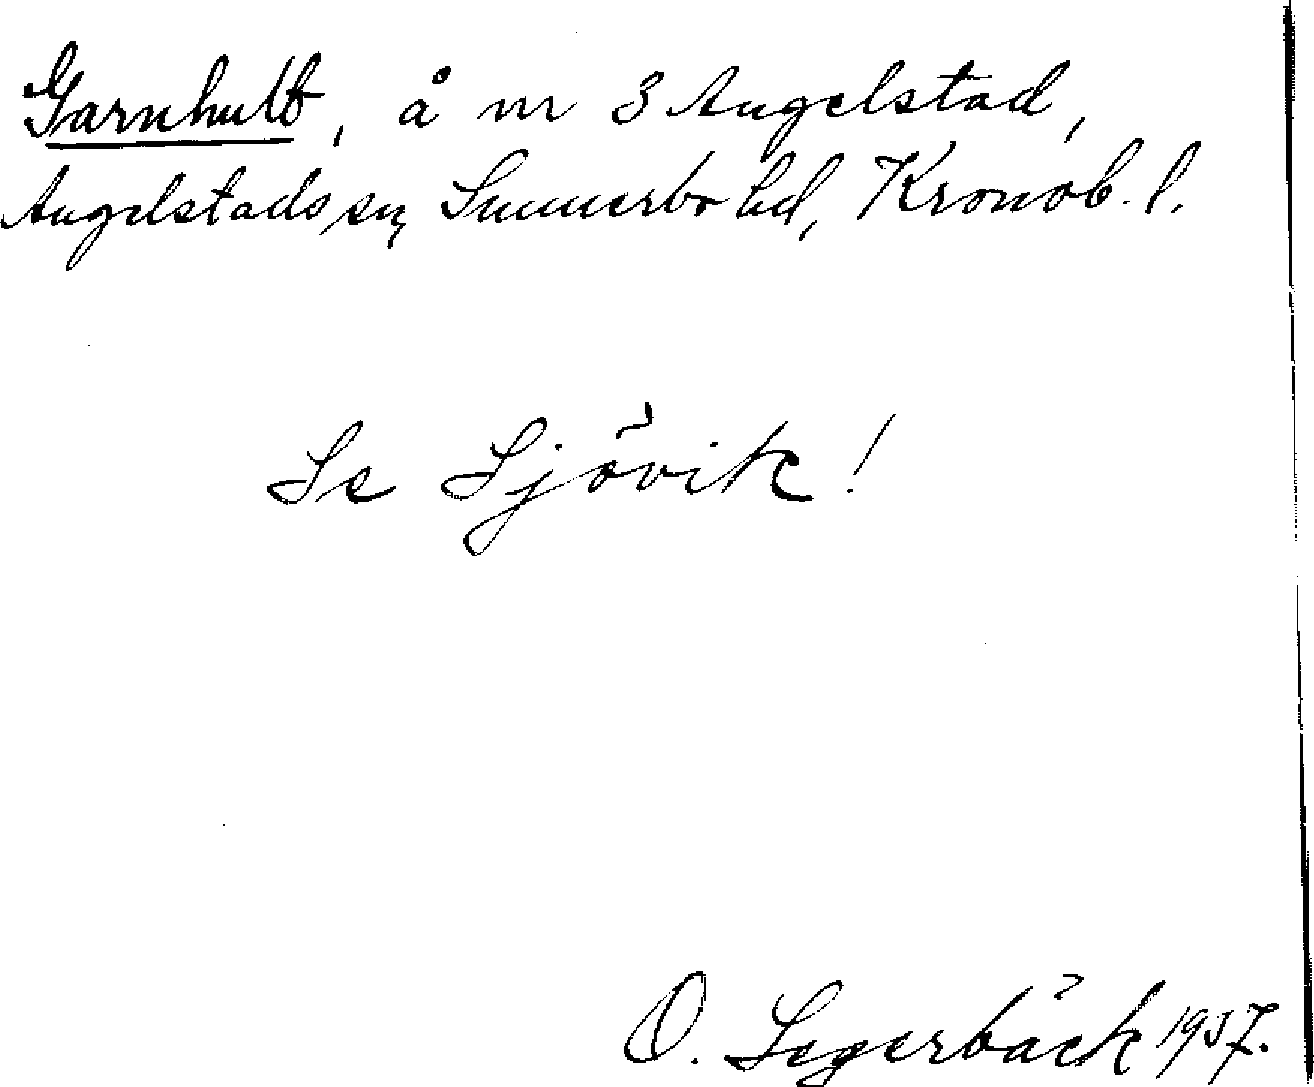 Garnhult, å nr 3 Angelstad,
Angelstads sn, Sunnerbo hd, Kronob. l.
Se Sjövik!
O. Segerbäck 1957.